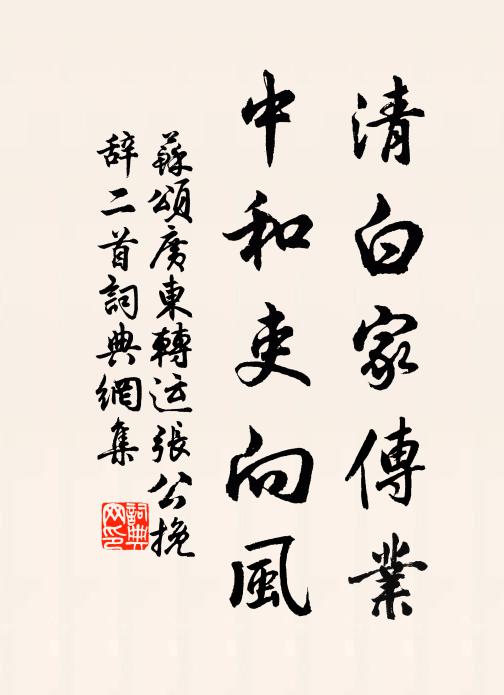 清白家傳業
中和吏向風
蘇頌廣東轉运張公挽
辞二首詞典網集
詞典
网印